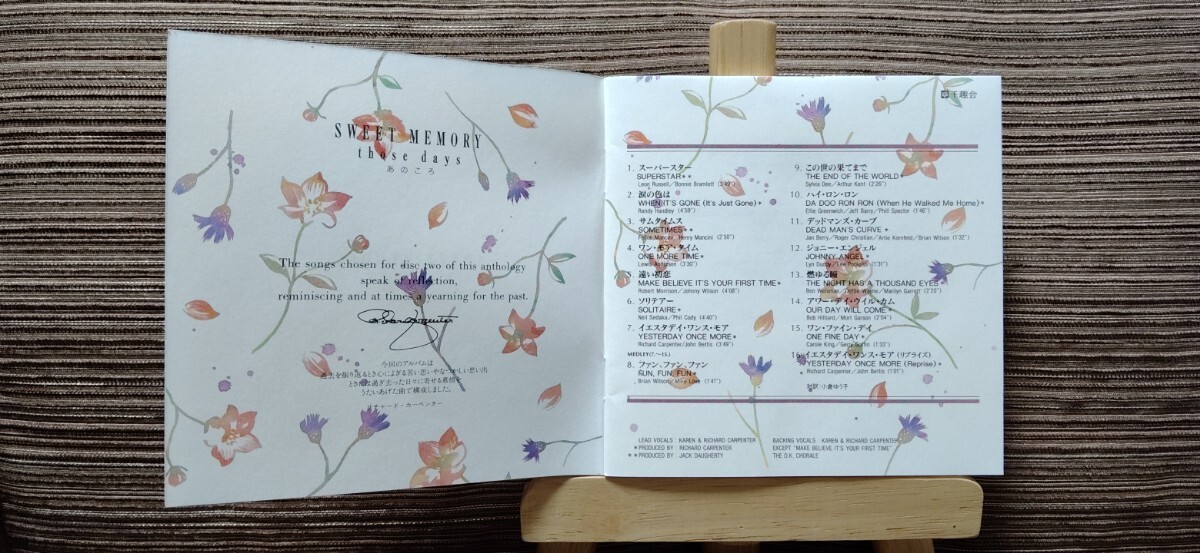 SWEET MEMORY
those days
あのころ
The songs chosen for disc two of this anthology
speak of reflection,
reminiscing and at times a yearning for the past.
今回のアルバムは
過去を振り返るとき心によぎる苦い思いやなつかしい思い出
ときには過ぎ去った日々に寄せる慕情を
うたいあげた曲で構成しました。
リチャード・カーペンター
千趣会
1. スーパースター
SUPERSTAR**
Leon Russell/Bonnie Bramlett (3'49")
2. 涙の色は
WHEN IT'S GONE (It's Just Gone)*
Randy Handley (4'59")
3. サムタイムス
SOMETIMES**
Felice Mancini/Henry Mancini (2'50")
4. ワン・モア・タイム
ONE MORE TIME*
Lewis Anderson (3'30")
5. 遠い初恋
MAKE BELIEVE IT'S YOUR FIRST TIME*
Robert Morrison/Johnny Wilson (4'08")
6. ソリテアー
SOLITAIRE*
Neil Sedaka/Phil Cody (4'40")
7. イエスタデイ・ワンス・モア
YESTERDAY ONCE MORE*
Richard Carpenter/John Bettis (3'49")
MEDLEY(7.~15.)
8. ファン、ファン、ファン
FUN, FUN, FUN*
Brian Wilson/Mike Love (1'41")
9. この世の果てまで
THE END OF THE WORLD*
Sylvia Dee/Arthur Kent (2'26")
10. ハイ・ロン・ロン
DA DOO RON RON (When He Walked Me Home)*
Ellie Greenwich/Jeff Barry/Phil Spector (1'46")
11. デッドマンズ・カーブ
DEAD MAN'S CURVE*
Jan Berry/Roger Christian/Artie Kornfeld/Brian Wilson (1'32")
12. ジョニー・エンジェル
JOHNNY ANGEL*
Lyn Duddy/Lee Pockriss (1'31")
13. 燃ゆる瞳
THE NIGHT HAS A THOUSAND EYES*
Ben Weisman/Dottie Wayne/Marilyn Garrett (2'20")
14. アワー・デイ・ウィル・カム
OUR DAY WILL COME*
Bob Hilliard/Mort Garson (2'04")
15. ワン・ファイン・デイ
ONE FINE DAY*
Carole King/Gerry Goffin (1'33")
16. イエスタデイ・ワンス・モア (リプライズ)
YESTERDAY ONCE MORE (Reprise)*
Richard Carpenter/John Bettis (1'01")
対訳:小倉ゆう子
LEAD VOCALS : KAREN & RICHARD CARPENTER
*PRODUCED BY : RICHARD CARPENTER
**PRODUCED BY : JACK DAUGHERTY
BACKING VOCALS : KAREN & RICHARD CARPENTER
EXCEPT "MAKE BELIEVE IT'S YOUR FIRST TIME"
THE O.K. CHORALE